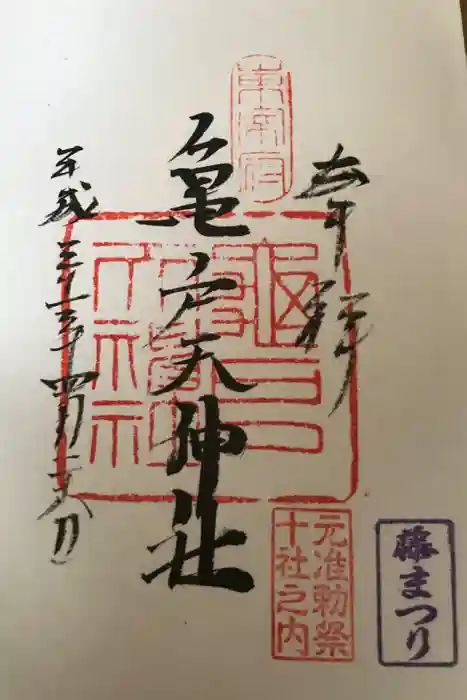 奉拝
東宰府
亀戸天神社
平成三十年四月二十八日
元准勅祭
十社之内
藤まつり